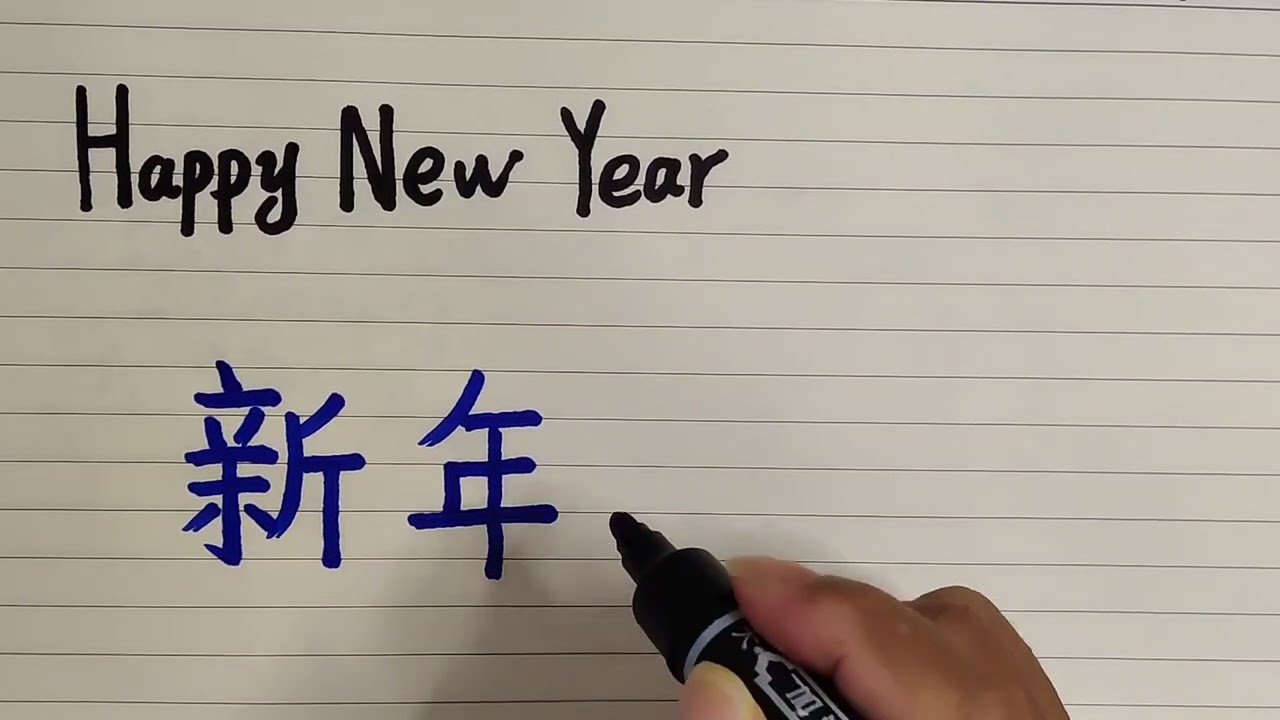 Happy New Year
新年